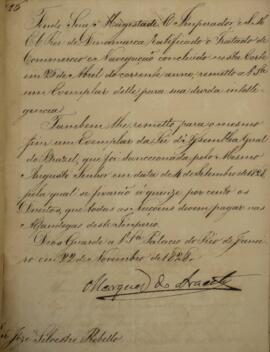 Tendo Sua Magestade O Imperador, e S. M.
El Rei de Dinamarca Ratificado o Tratado de
Commercio e Navegação concluido nesta Corte
em 26 de Abril do corrente anno, remetto a V. Sa.
um Exemplar delle para sua devida intelli-
gencia.
Tambem lhe remetto para o mesmo
fim um Exemplar da Lei d'Assemblea Geral
do Brazil, que foi sanccionada pelo Mesmo
Augusto Senhor em data de 4 de Setembro de 1828
pela qual se fixarão a quinze por cento os
Direitos, que todas as Nacoens devem pagar nas
Alfandegas deste Imperio.
Deos Guarde a V. Sa. Palacio do Rio de Janei-
ro em 22 de Novembro de 1828.
Marquez do Aracaty
José Silvestre Rebello